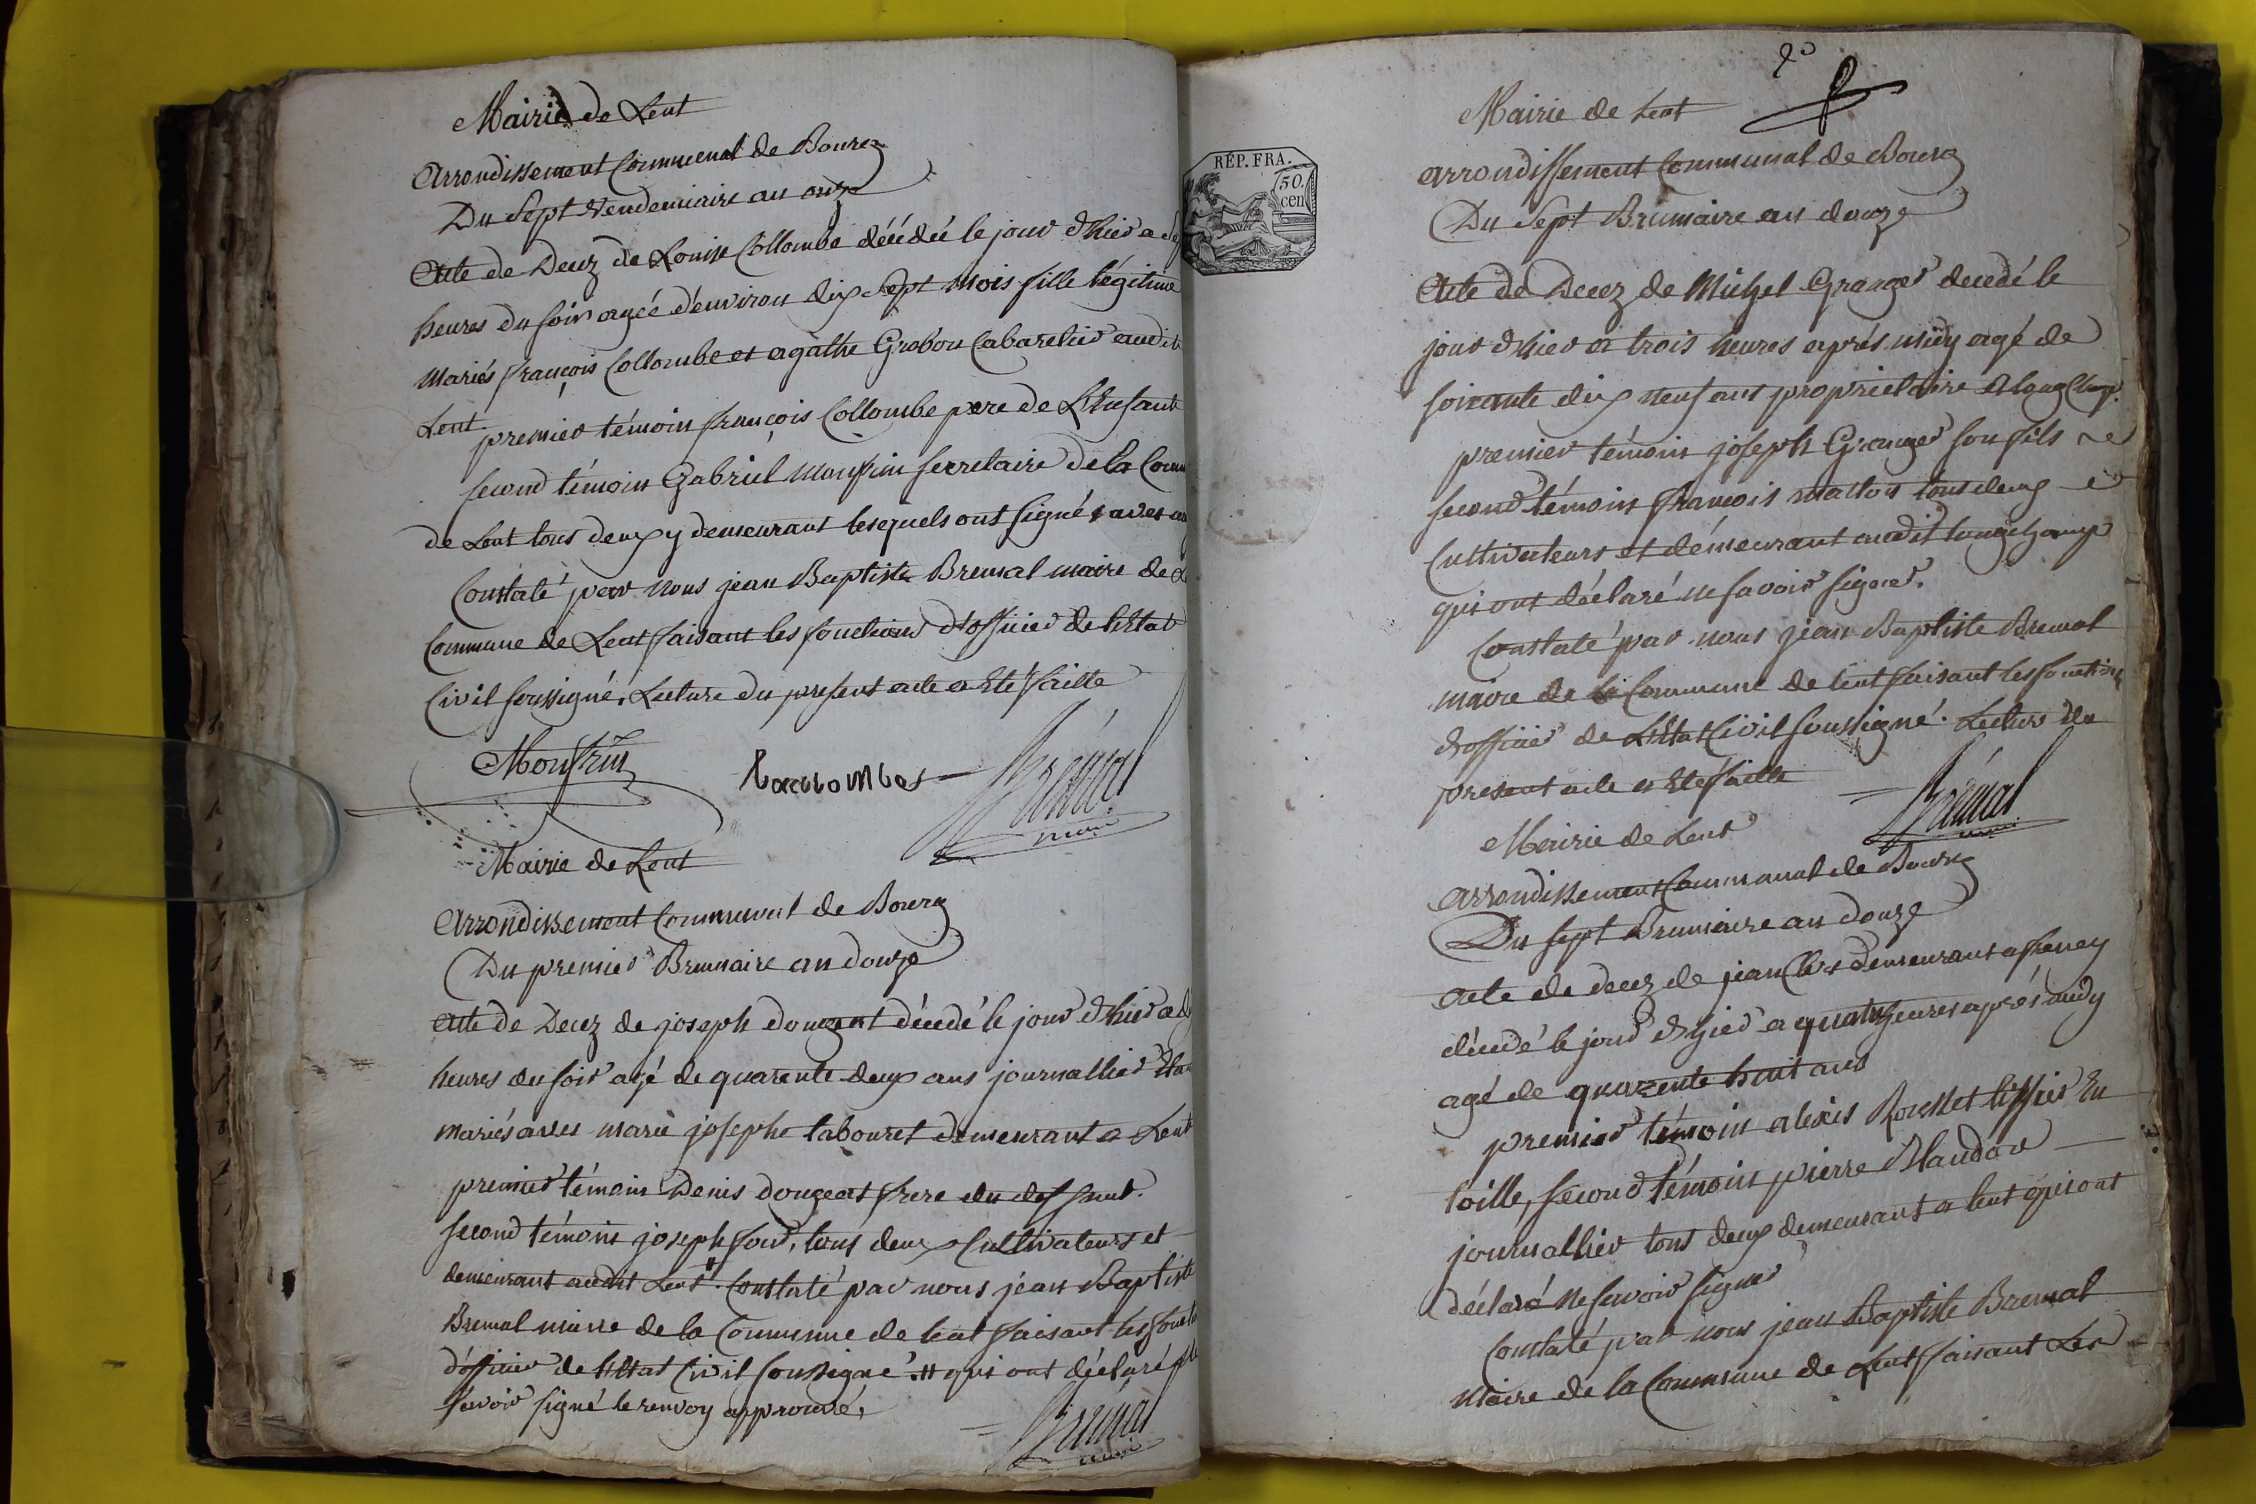 Mairie de Lent
Arrondissement Communal de Bourg
Du Sept Vendemiaire an onze
Acte de Decez de Louise Collombe décédée le jour d'hier a
heures du soir agée d'environ dix sept mois fille légitime
mariés françois Collombe et agathe Grobon Cabaretier audit
Lent.
premier témoin françois Collombe pere de L'Enfant
second témoin Gabriel Monfrin secretaire de la Comm
de Lent tous deux y demeurant lesquels ont signés avec
Constaté par nous jean Baptiste Bremal maire de
Commune de Lent faisant les fonctions d'officier de L'Etat
Civil soussigné. Lecture du present acte a Eté faitte
Monfrin
Bremal
maire
Mairie de Lent
Arrondissement Communal de Bourg
Du premier Brumaire an douze
Acte de Decez de joseph douzent décedé le jour d'hier a
heures du soir agé de quarente deux ans journallier
mariés avec marie josephe tabouret demeurant a Lent
premier témoin Denis douzent frere du deffunt.
second témoin joseph four, tous deux Cultivateurs et
demeurant audit Lent # . Constaté par nous jéan Baptiste
Bremal maire de la Commune de lent faisant les foncti
d'officier de L'Etat Civil soussigné. # qui ont déclaré
savoir signé le renvoy approuvé.
Bremal
maire
RÉP. FRA.
50.
cen
Mairie de Lent
arrondissement Communal de Bourg
Du Sept Brumaire an douze
Acte de Decez de Michel Granger decedé le
jour d'hier a trois heures aprés midy agé de
soixante dix neuf ans proprietaire a Longchamp.
premier témoin joseph Granger son fils
second témoin françois mallois tous deux
Cultivateurs et démeurant audit longchamp
qui ont déclaré ne savoir signer.
Constaté par nous jean Baptiste Bremal
maire de la Commune de lent faisant les fonctions
d'officier de L'Etat Civil soussigné. Lecture du
present acte a Eté faitte
Bremal
maire
Mairie de Lent
arrondissement Communal de Bourg
Du sept Brumaire an douze
acte de decez de jean demeurant a
décedé le jour d'hier a quatre heures aprés midy
agé de quarente huit ans
premier témoin alexis Rousset tissier En
toille, second témoin pierre Blandon
journallier tous deux demeurant a lent qui ont
déclaré ne savoir signer
Constaté par nous jean Baptiste Bremal
maire de la Commune de Lent faisant Les